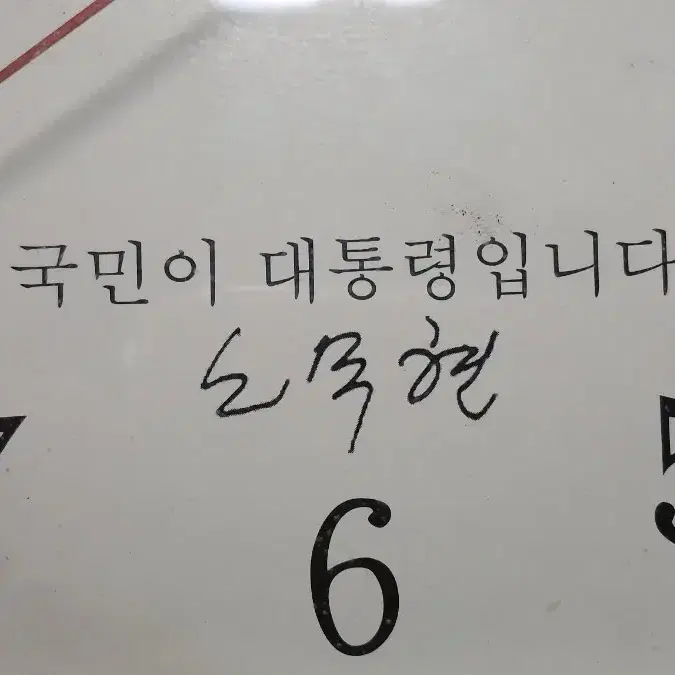 국민이 대통령입니다
노무현
7 6 5